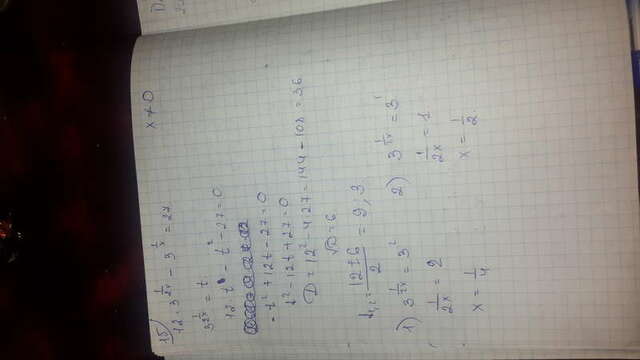 15) x ≠ 0
12 · 3^(1/2x) - 3^(1/x) = 27
3^(1/2x) = t
12 · t - t² - 27 = 0
- t² + 12t - 27 = 0
t² - 12t + 27 = 0
D = 12² - 4·27 = 144 - 108 = 36
√D = 6
t₁,₂ = (12 ± 6)/2 = 9; 3
1) 3^(1/2x) = 3²
1/2x = 2
x = 1/4
2) 3^(1/2x) = 3¹
1/2x = 1
x = 1/2